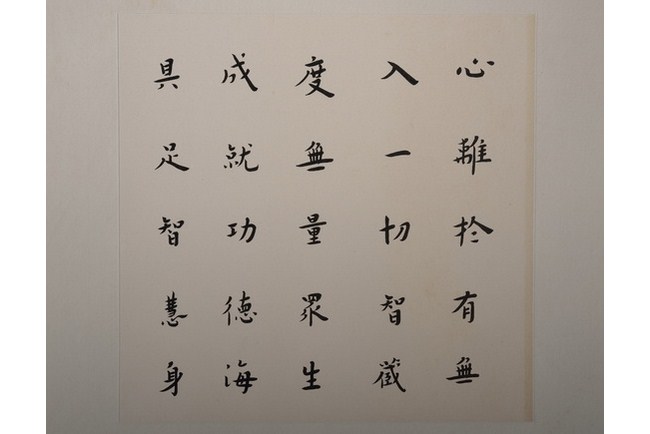 心離於有無
入一切智藏
度無量眾生
成就功德海
具足智慧身